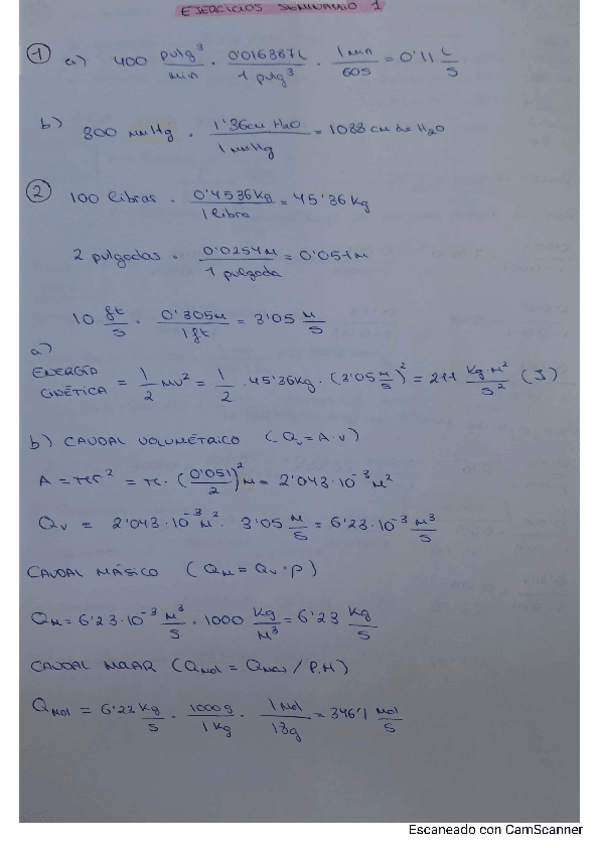 EJERCICIOS SEMINARIO 1
1 a) 400 pulg³/min · 0'016387L/1 pulg³ · 1 min/60s = 0'11 L/s
b) 800 mmHg · 1'36cm H₂O/1 mmHg = 1088 cm de H₂O
2 100 libras · 0'4536Kg/1 libra = 45'36 Kg
2 pulgadas · 0'0254M/1 pulgada = 0'051M
10 ft/s · 0'305M/1 ft = 3'05 M/s
a)
ENERGÍA CINÉTICA = 1/2 MV² = 1/2 · 45'36Kg · (3'05 M/s)² = 211 Kg·M²/s² (J)
b) CAUDAL VOLUMÉTRICO (Qv = A·v)
A = πr² = π · (0'051/2)² M = 2'043·10⁻³ M²
Qv = 2'043·10⁻³ M² · 3'05 M/s = 6'23·10⁻³ M³/s
CAUDAL MÁSICO (QM = Qv·ρ)
QM = 6'23·10⁻³ M³/s · 1000 Kg/M³ = 6'23 Kg/s
CAUDAL MOLAR (Qmol = Qmas / P.M)
Qmol = 6'23 Kg/s · 1000g/1 Kg · 1 Mol/18g = 346'1 mol/s
Escaneado con CamScanner